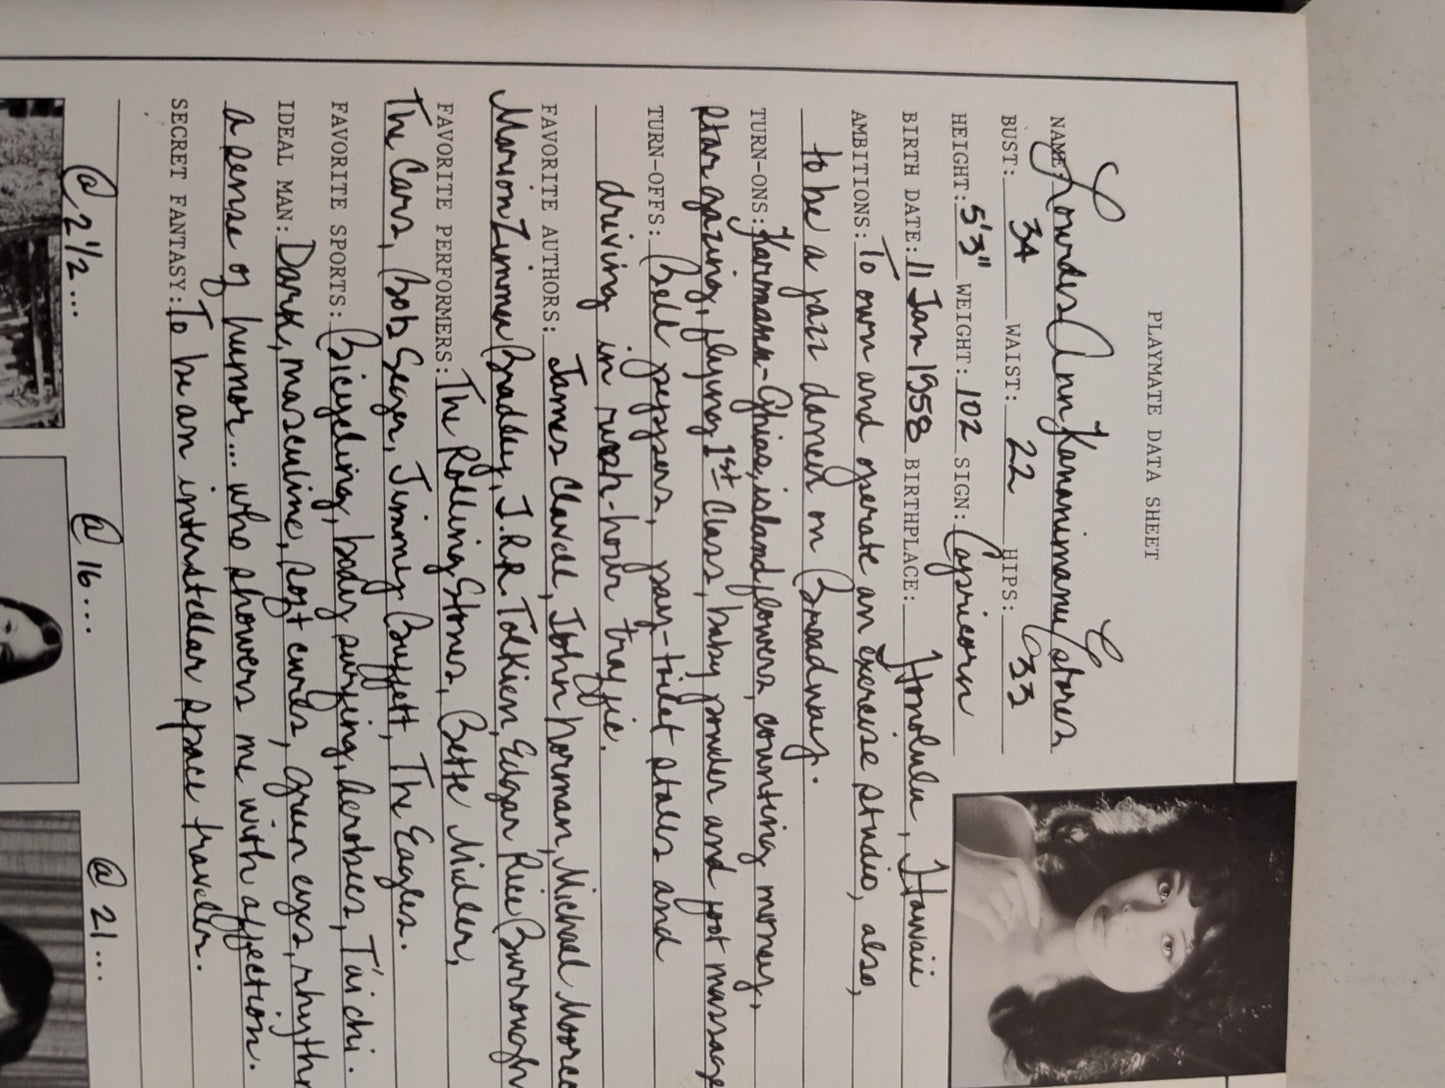 PLAYMATE DATA SHEET
NAME: Lourdes Ann Kananimanu Estores
BUST: 34 WAIST: 22 HIPS: 33
HEIGHT: 5'3" WEIGHT: 102 SIGN: Capricorn
BIRTH DATE: 11 Jan 1958 BIRTHPLACE: Honolulu, Hawaii
AMBITIONS: To own and operate an exercise studio, also,
to be a jazz dancer on Broadway.
TURN-ONS: Karmann-Ghias, island flowers, counting money,
star gazing, flying 1st Class, baby powder and foot massage
TURN-OFFS: Bell peppers, pay-toilet stalls and
driving in rush-hour traffic.
FAVORITE AUTHORS: James Clavell, John Norman, Michael Moorco
Marion Zimmer Bradley, J.R.R. Tolkien, Edgar Rice Burrough
FAVORITE PERFORMERS: The Rolling Stones, Bette Midler,
The Cars, Bob Seger, Jimmy Buffett, The Eagles.
FAVORITE SPORTS: Bicycling, body surfing, Aerobics, T'ai chi.
IDEAL MAN: Dark, masculine, soft curls, green eyes, rhythm
a sense of humor... who showers me with affection.
SECRET FANTASY: To be an interstellar space traveler.
@ 2 1/2... @ 16... @ 21...